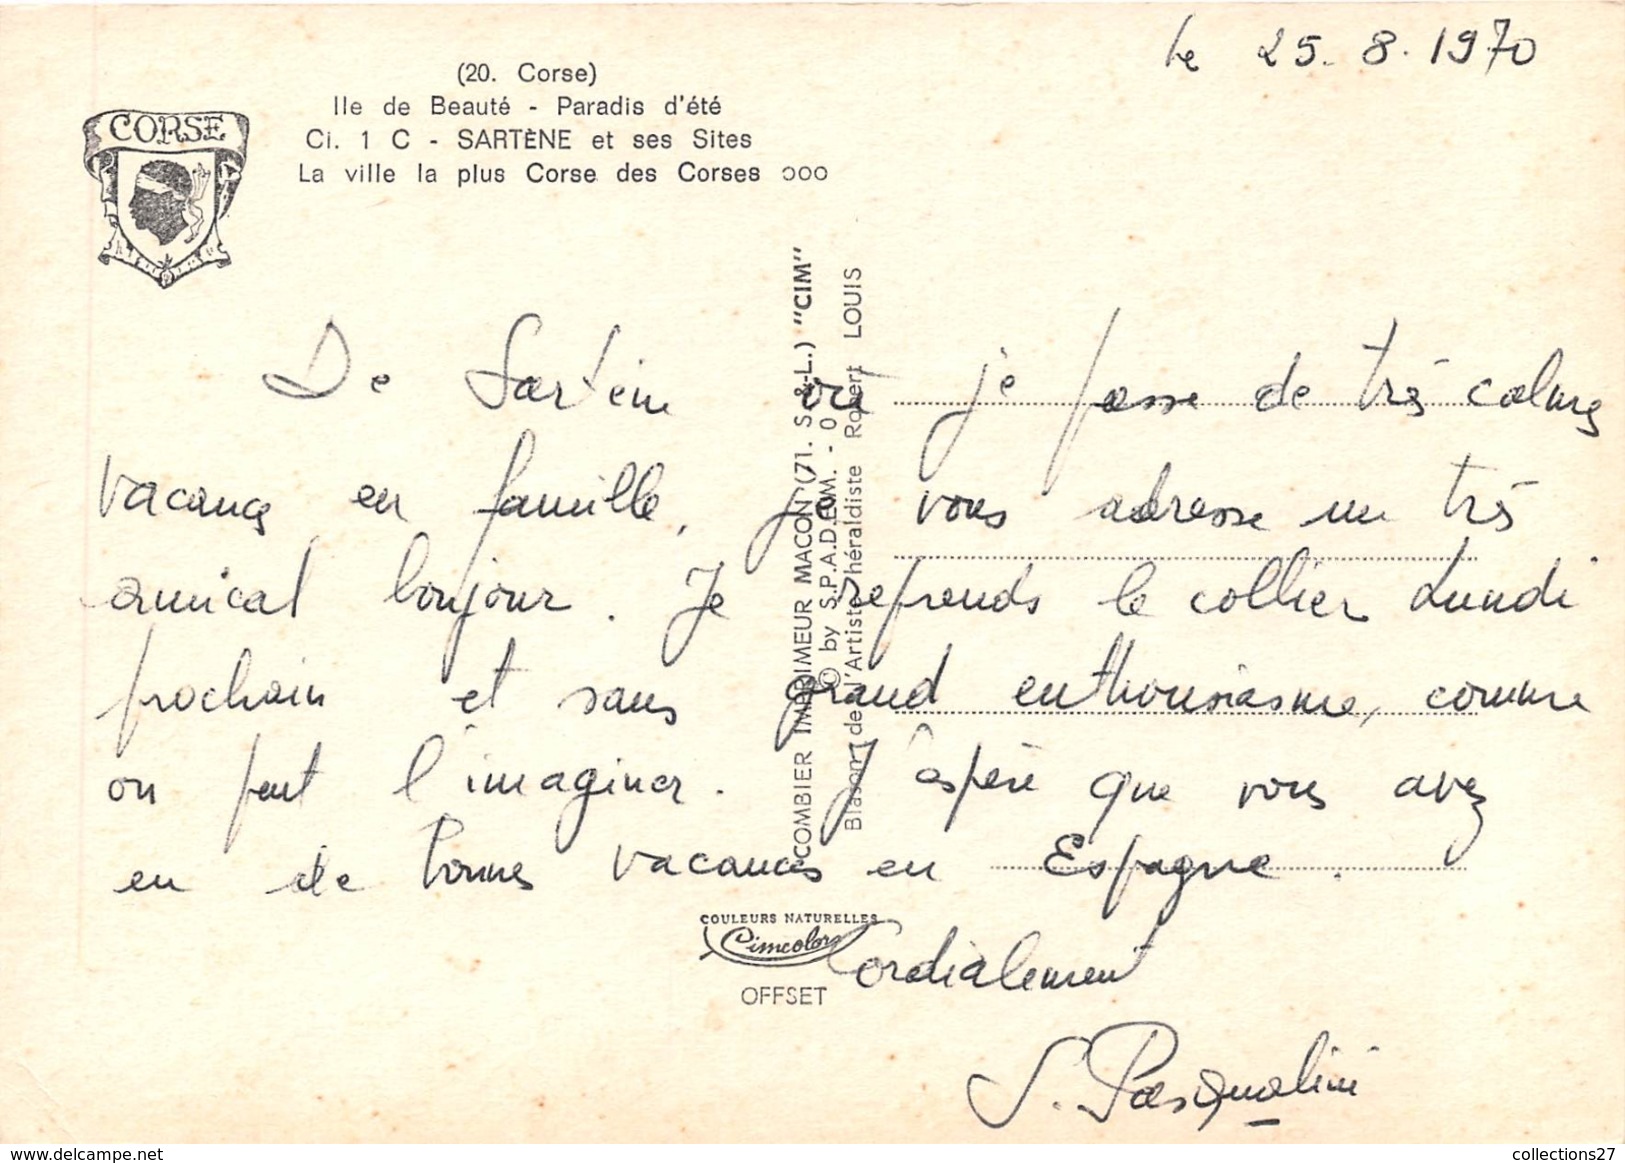 le 25.8.1970
(20. Corse)
Ile de Beauté - Paradis d'été
Ci. 1 C - SARTÈNE et ses Sites
La ville la plus Corse des Corses
CORSE
De Sartène où je passe de très calmes
vacances en famille, je vous adresse un très
amical bonjour. Je reprends le collier Lundi
prochain et sans grand enthousiasme, comme
on peut l'imaginer. J'espère que vous avez
eu de bonnes vacances en Espagne.
Cordialement
S. Pasqualini
COMBIER IMPRIMEUR MACON (71. S.-&-L.) "CIM"
© by S.P.A.D.E.M. - 0
Blason de l'Artiste héraldiste Robert LOUIS
COULEURS NATURELLES
Cimcolor
OFFSET
www.delcampe.net
collections27